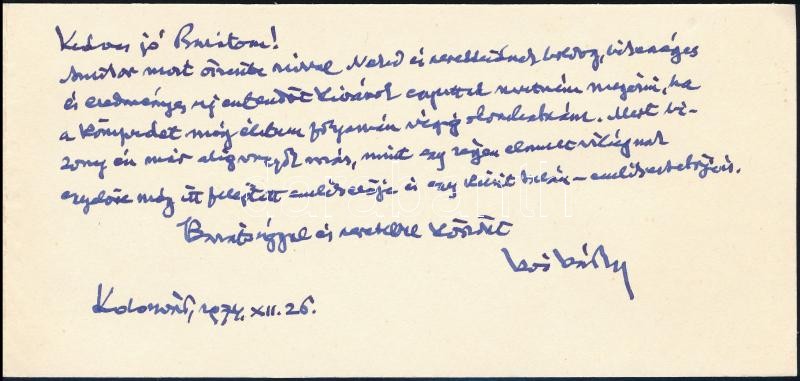 Kedves jó Barátom!
Amikor most őszinte szívvel Neked és szeretteidnek boldog, békességes
és eredményes új esztendőt kívánok egyúttal szeretném megérni, ha
a könyvedet még életem folyamán végig olvashatnám. Mert bi-
zony én már alig vagyok más, mint egy régen elmúlt világnak
egyelőre még itt felejtett emlékeztetője és egy kicsit talán –
Barátsággal és szeretettel köszönt
Kós Károly
Kolozsvár, 1974. XII. 26.